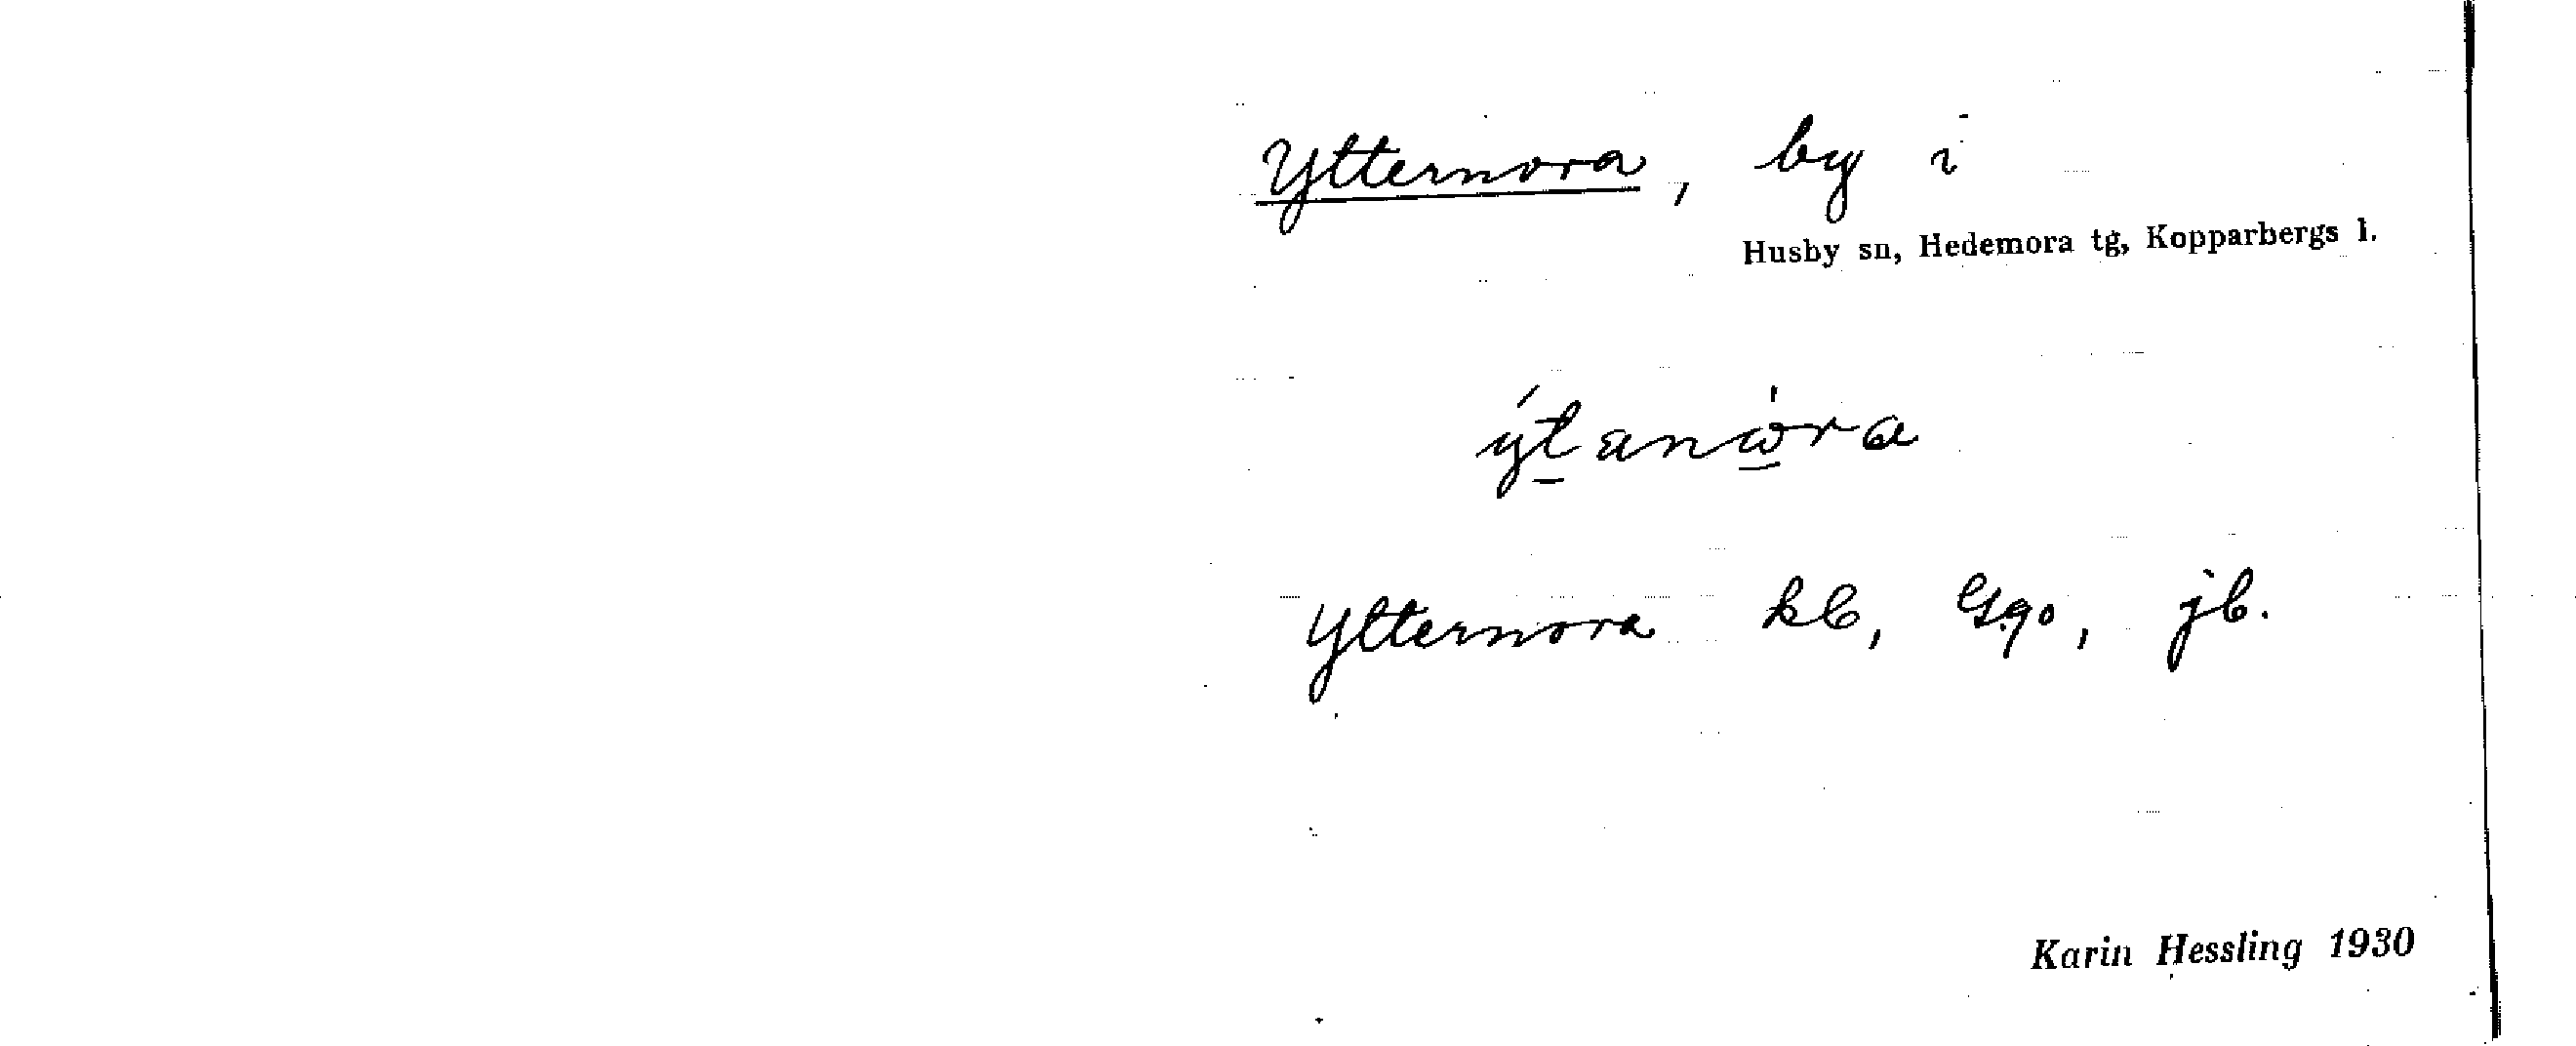 Ytternora, by i
Husby sn, Hedemora tg, Kopparbergs l.
Ytternora kb, Gqo, jb.
Karin Hessling 1930